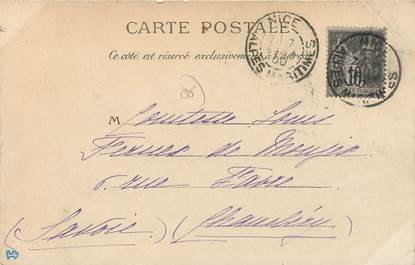 CARTE POSTALE
Ce côté est réservé exclusivement à l'adresse
NICE
ALPES MARITIMES
10
M Comtesse Louis
Fernex de Mongex
6. rue Favre
(Savoie) Chambéry